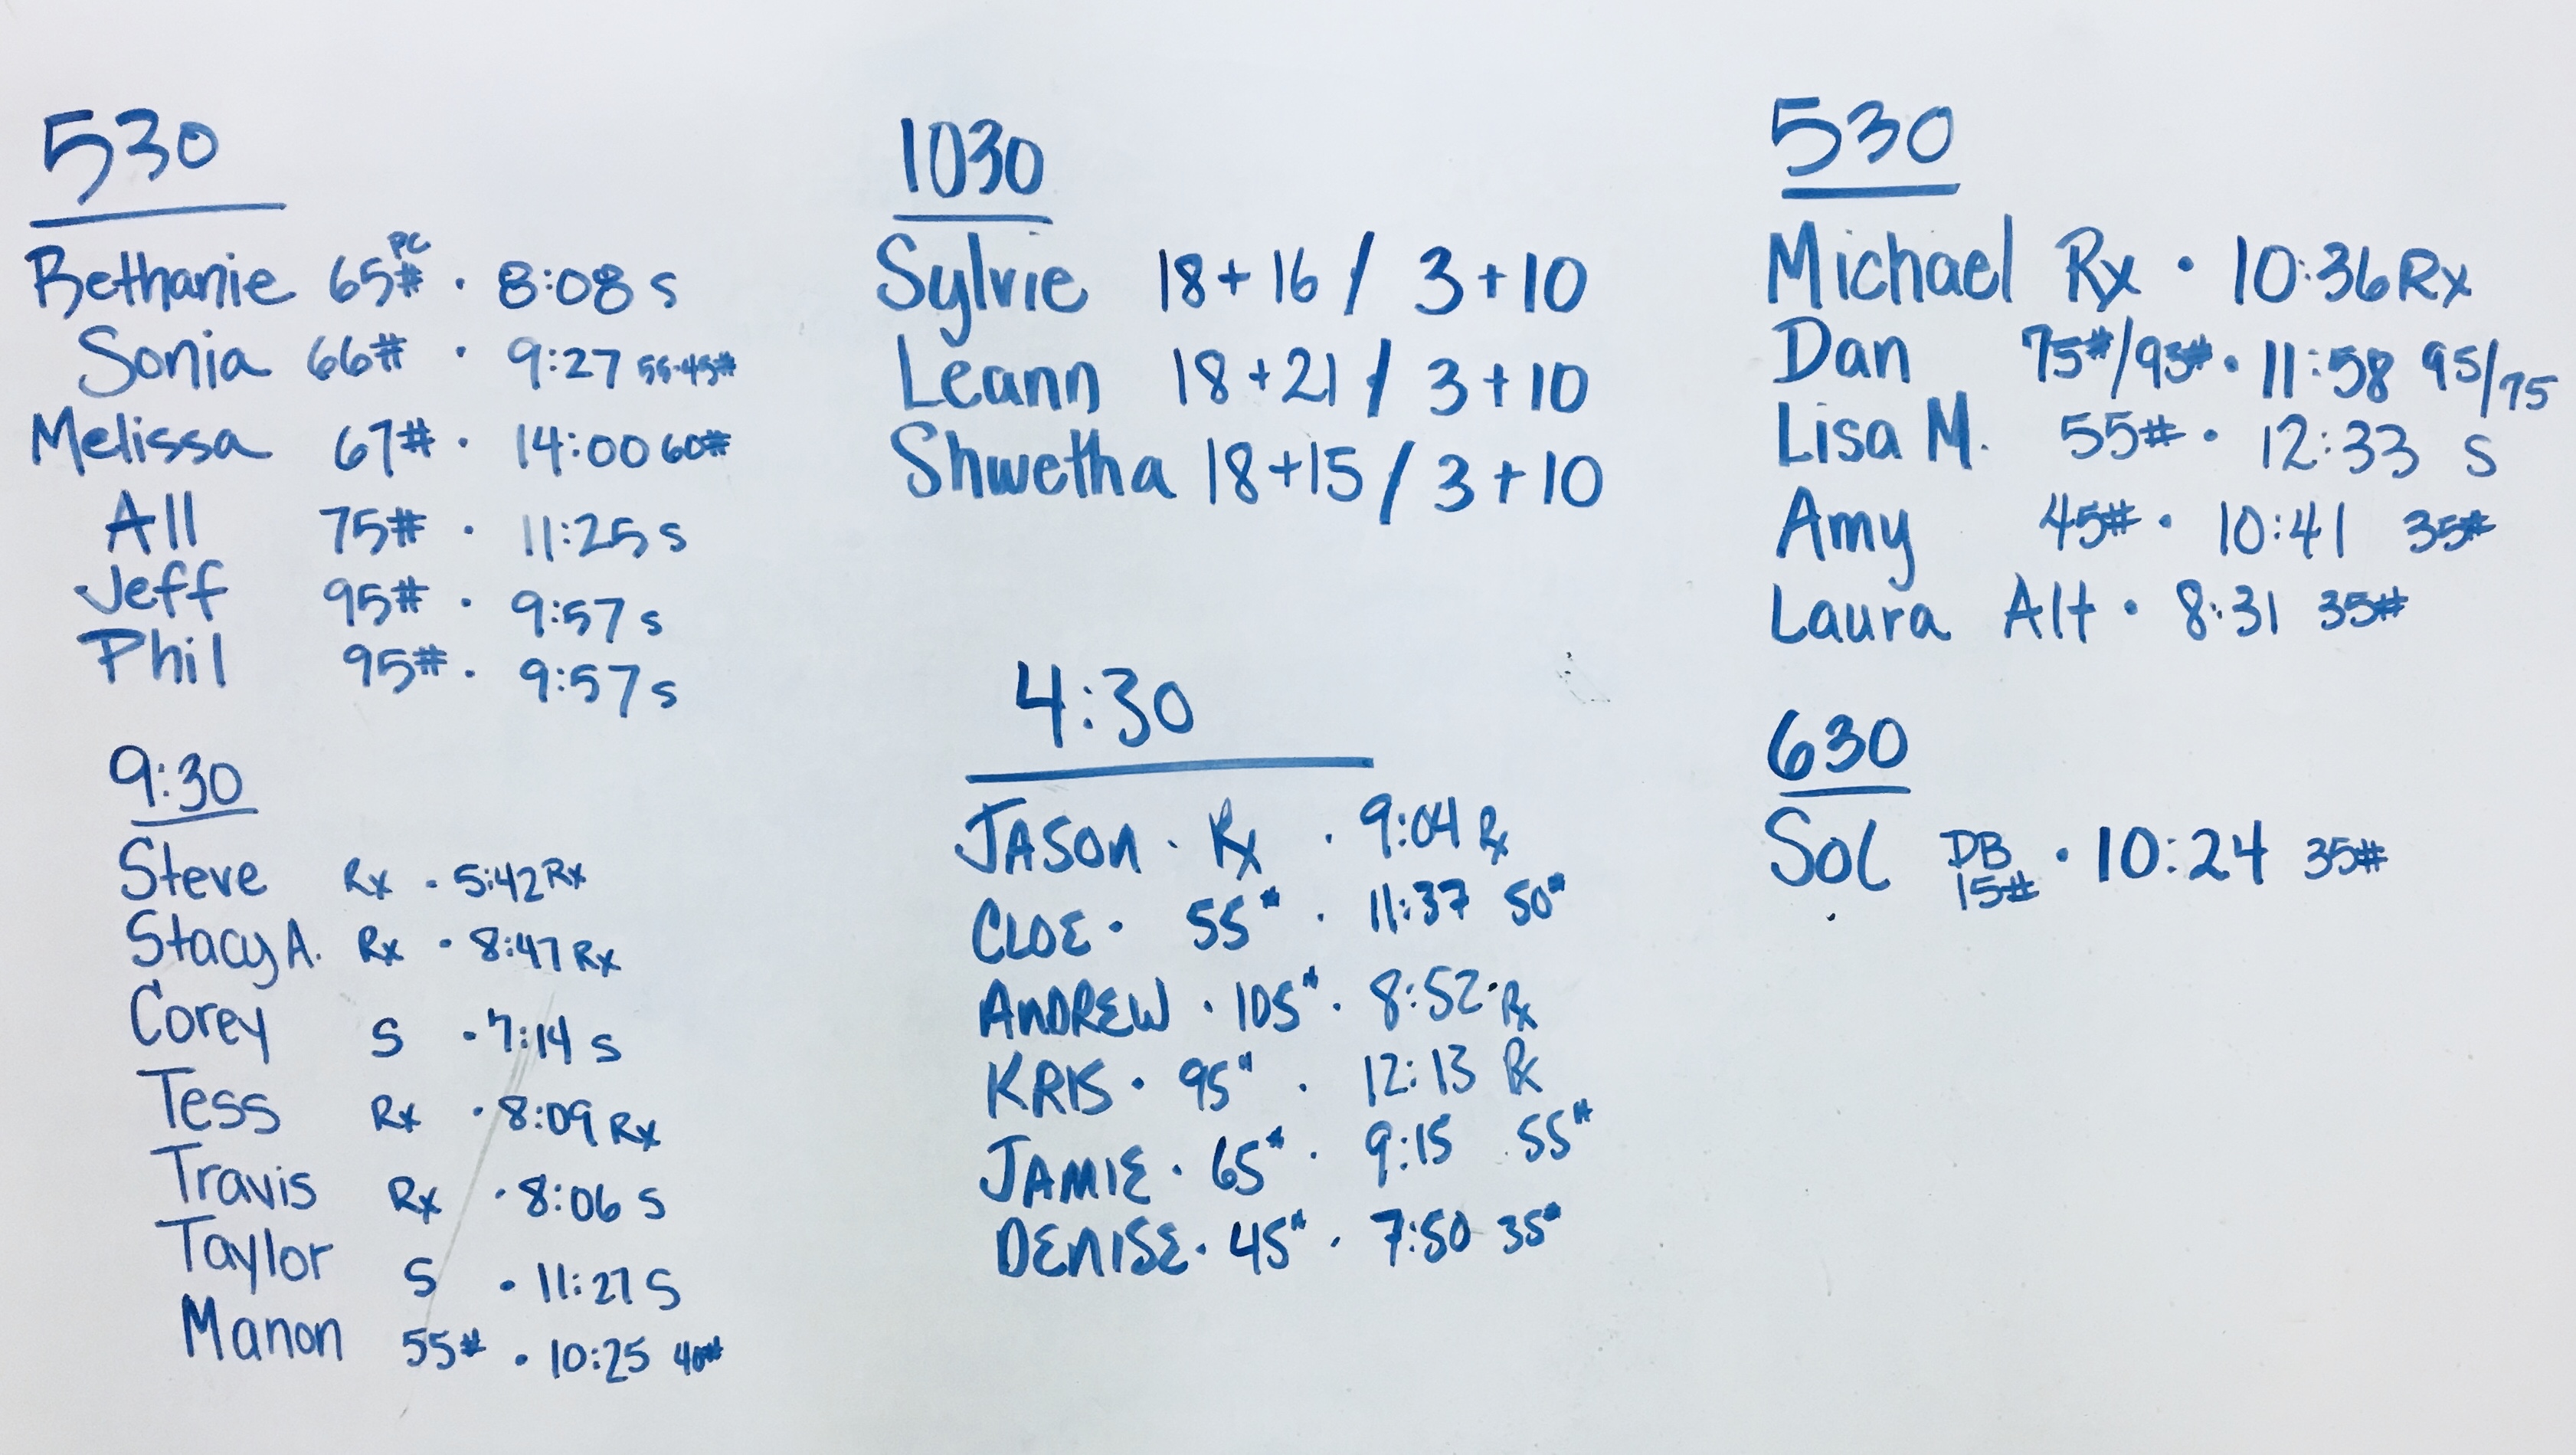 530
Bethanie 65# PC · 8:08 s
Sonia 66# · 9:27 55-45#
Melissa 67# · 14:00 60#
All 75# · 11:25 s
Jeff 95# · 9:57 s
Phil 95# · 9:57 s
9:30
Steve Rx · 5:42 Rx
Stacy A. Rx · 8:47 Rx
Corey S · 7:14 s
Tess Rx · 8:09 Rx
Travis Rx · 8:06 s
Taylor S · 11:27 S
Manon 55# · 10:25 40#
1030
Sylvie 18+16 / 3+10
Leann 18+21 / 3+10
Shwetha 18+15 / 3+10
4:30
JASON · Rx · 9:04 Rx
CLOE · 55# · 11:37 50#
ANDREW · 105# · 8:52 · Rx
KRIS · 95# · 12:13 Rx
JAMIE · 65# · 9:15 55#
DENISE · 45# · 7:50 35#
530
Michael Rx · 10:36 Rx
Dan 75#/93# · 11:58 95/75
Lisa M. 55# · 12:33 S
Amy 45# · 10:41 35#
Laura Alt · 8:31 35#
630
Sol DB 15# · 10:24 35#